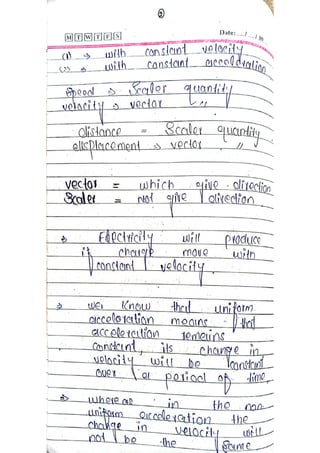 M T W T F S
Date: __/__/20
(1) → with constant velocity
(2) → with constant acceleration
speed → Scaler quantity
velocity → vector "
distance = Scaler quantity
displacement → vector "
vector = which give direction
Scaler = not give direction
→ Electricity will produce
if charge move with
constant velocity.
→ We know that uniform
acceleration means that
acceleration remains
constant, its change in
velocity will be constant
over a period of time.
→ whereas in the non
uniform acceleration the
change in velocity will
not be the same